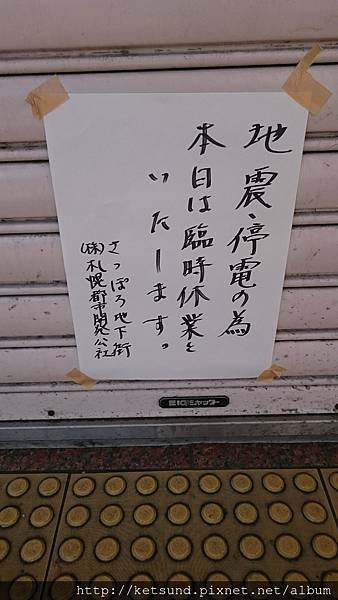 地震、停電の為
本日は臨時休業と
いたします。
さっぽろ地下街
(株)札幌都市開発公社
三和シヤッター
http://ketsund.pixnet.net/album